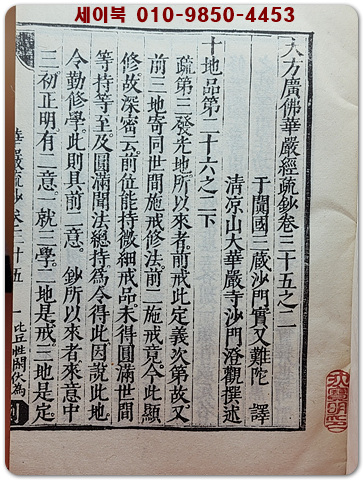 세이북 010-9850-4453
大方廣佛華嚴經疏鈔卷三十五之二
于闐國三藏沙門實叉難陀 譯
清凉山大華嚴寺沙門澄觀撰述
十地品第二十六之二下
疏第三發光地所以來者前戒此定義次第故又
前三地寄同世間施戒修法前二施戒竟今此顯
修故深密云前位能持微細戒品未得圓滿世間
等持等至及圓滿聞法總持為令得此因說此地
令勤修學此則具前二意 鈔所以來者來意中
三初正明有二意一就三學二地是戒三地是定
華嚴疏鈔卷三十五 一